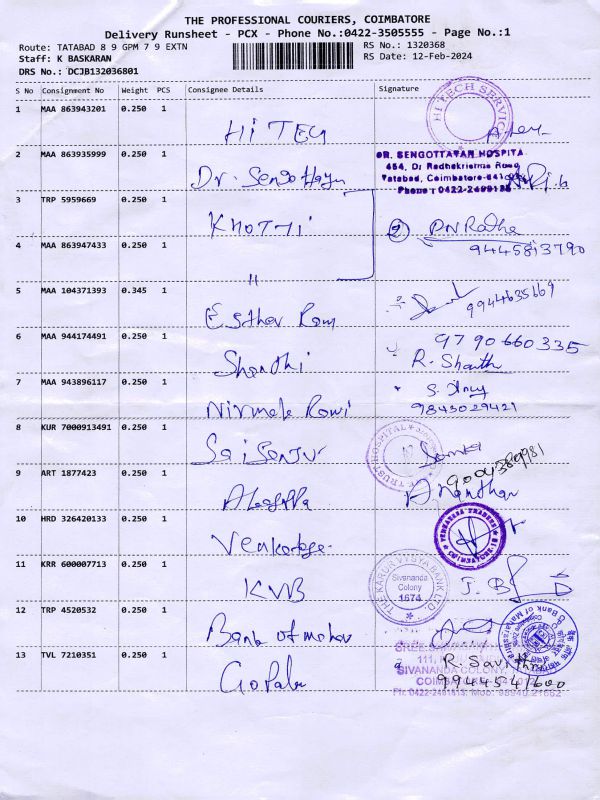 THE PROFESSIONAL COURIERS, COIMBATORE
Delivery Runsheet - PCX - Phone No.:0422-3505555 - Page No.:1
Route: TATABAD 8 9 GPM 7 9 EXTN
RS No.: 1320368
Staff: K BASKARAN
RS Date: 12-Feb-2024
DRS No.: DCJB132036801
S No Consignment No Weight PCS Consignee Details Signature
1 MAA 863943201 0.250 1 Hi TECH
HI TECH SERVICE
2 MAA 863935999 0.250 1 Dr. Sengottayn
DR. SENGOTTAYAN HOSPITA
454, Dr Radhakrishna Road
Tatabad, Coimbatore-641
Phone : 0422-2498135
3 TRP 5959669 0.250 1 KHOTHI
2 PN Radha
9445813790
4 MAA 863947433 0.250 1 "
5 MAA 104371393 0.345 1 Esther Rani
9944635669
6 MAA 944174491 0.250 1 Shanthi
9790660335
R. Shanthi
7 MAA 943896117 0.250 1 Nirmala Rani
9843029421
8 KUR 7000913491 0.250 1 Sai Sanju
TRUST HOSPITAL
9 ART 1877423 0.250 1 Alagappa
9004389981
Ananthan
10 HRD 326420133 0.250 1 Venkatesa
COIMBATORE
11 KRR 600007713 0.250 1 KVB
THE KARUR VYSYA BANK LTD
Sivananda
Colony
1674
12 TRP 4520532 0.250 1 Bank of mahar
Bank of Maharashtra
13 TVL 7210351 0.250 1 Gopala
R. Savithri
9944541600
SIVANANDA COLONY
COIMBATORE
Ph: 0422-2461813. Mob: 98940 21662